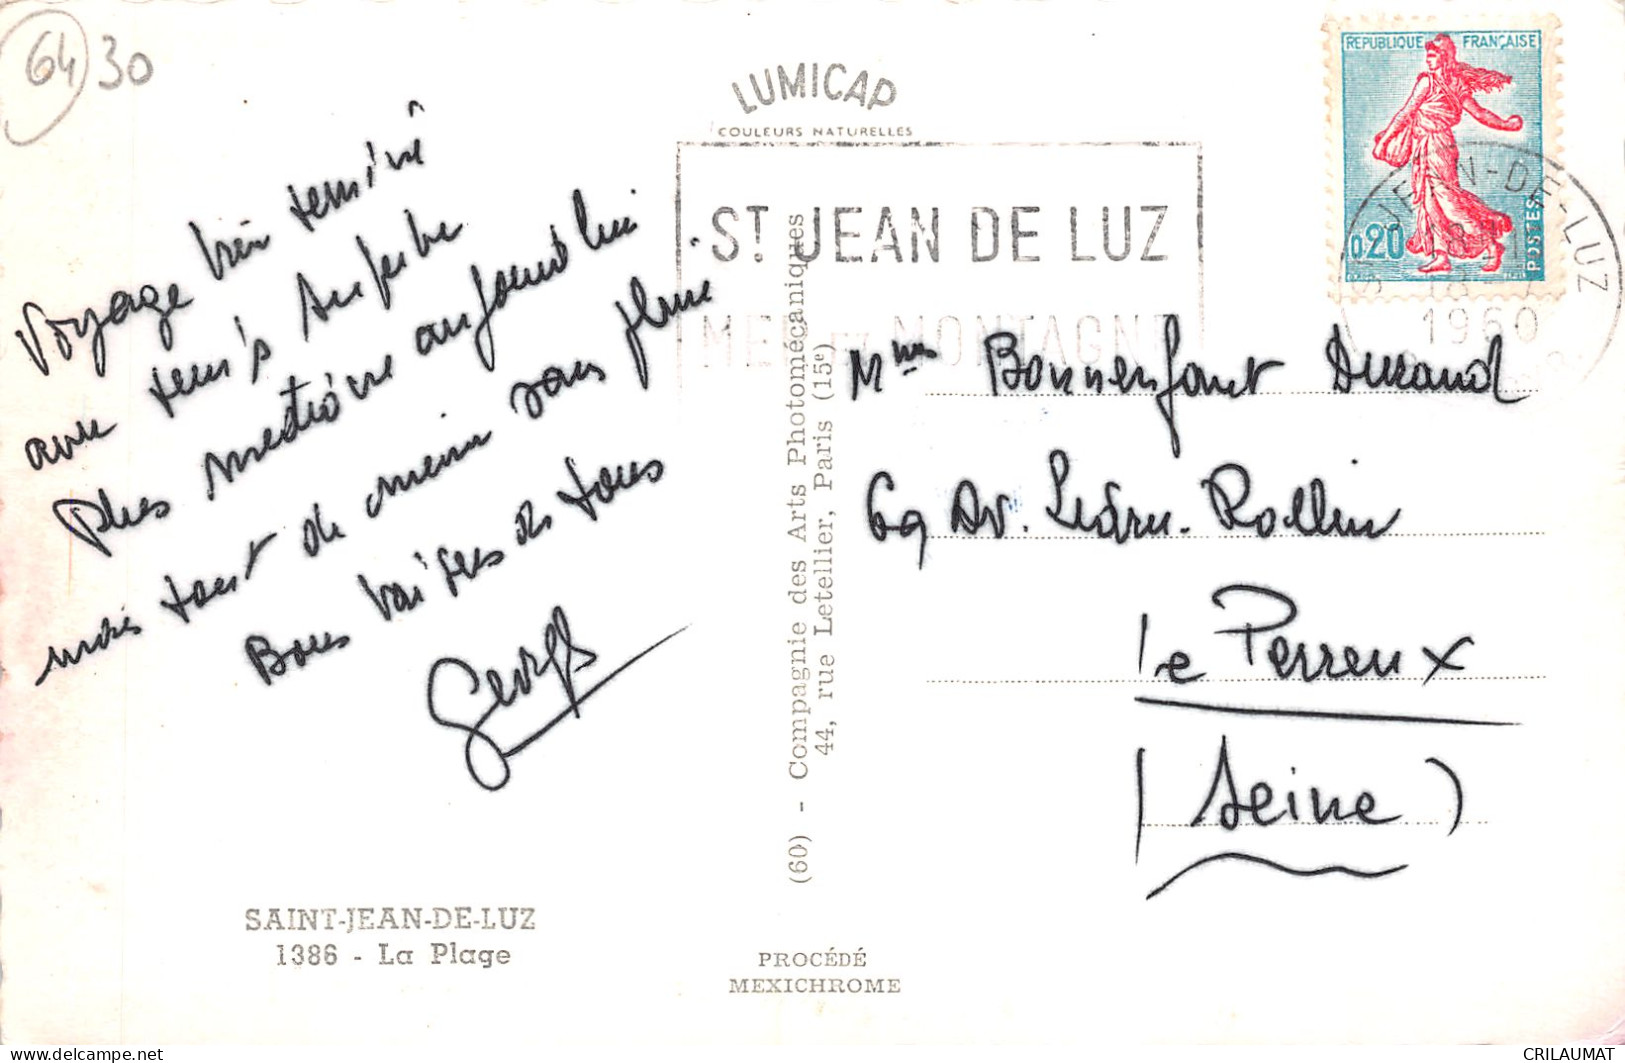 64 30
LUMICAP
COULEURS NATURELLES
REPUBLIQUE FRANÇAISE
0,20
POSTES
ST JEAN DE LUZ
MER ET MONTAGNE
ST JEAN-DE-LUZ
18
1960
Voyage bien terminé
avec temps superbe
Plus médiocre aujourd'hui
mais tout de même sans pluie.
Bons baisers de tous
Georges
Mmes Bonnenfant Durand
69 Av. Ledru-Rollin
Le Perreux
(Seine)
(60) - Compagnie des Arts Photomécaniques
44, rue Letellier, Paris (15e)
SAINT-JEAN-DE-LUZ
1386 - La Plage
PROCÉDÉ
MEXICHROME
CRILAUMAT